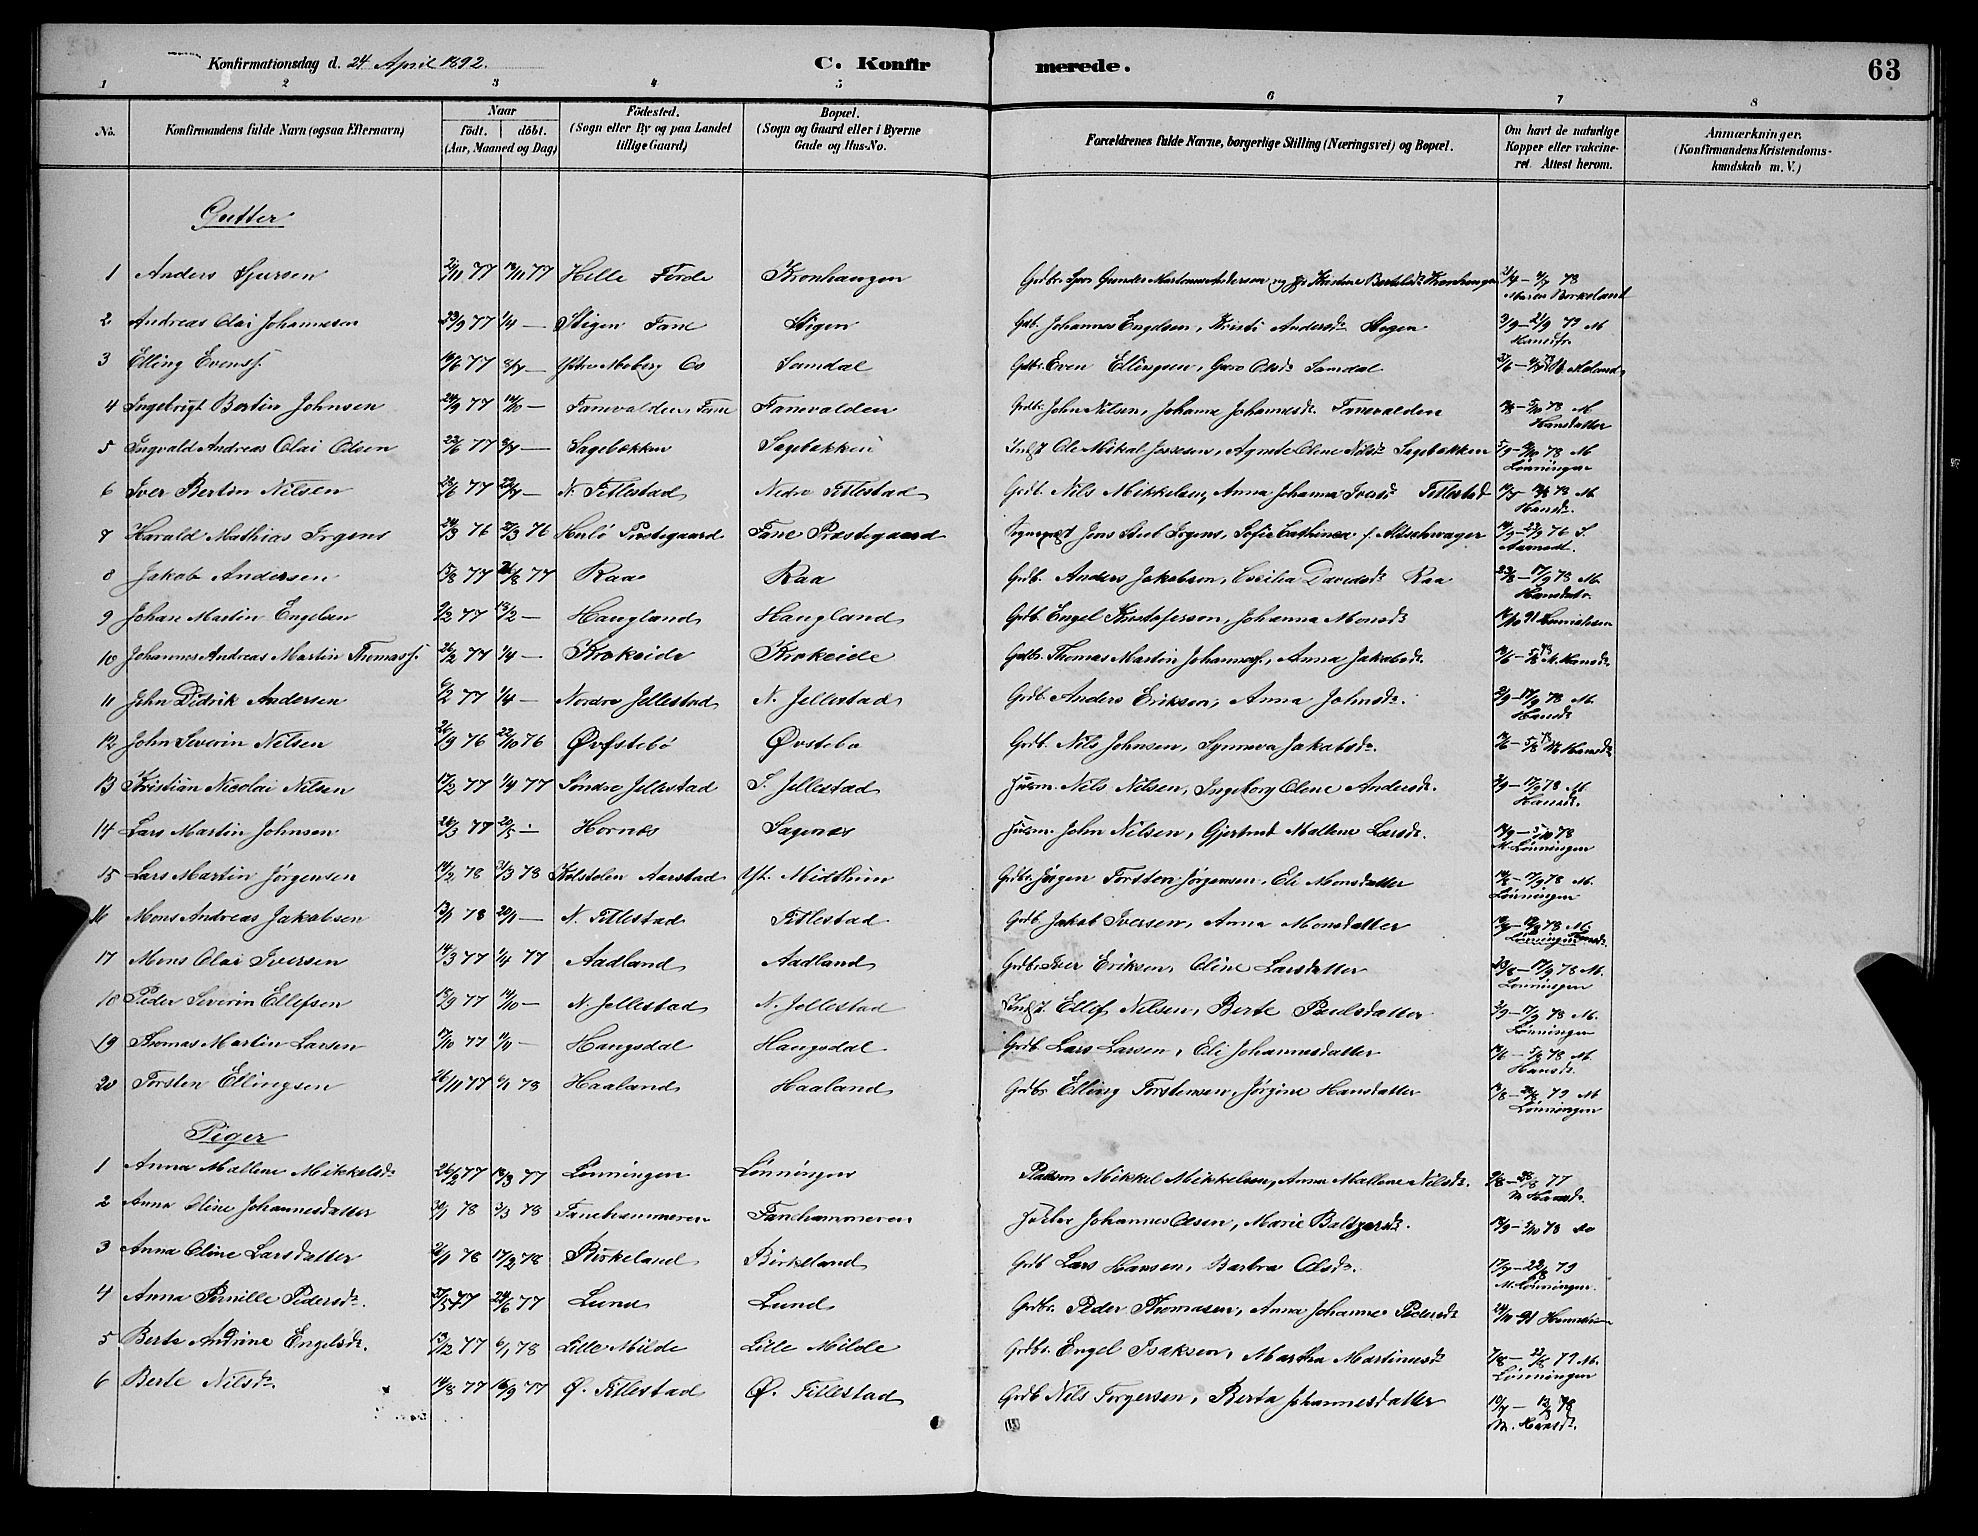 Konfirmationsdag d. 24 April 1892. C. Konfirmerede. 63
1 2 3 4 5 6 7 8
No. Konfirmandens fulde Navn (ogsaa Efternavn) Naar födt. döbt. (Aar, Maaned og Dag) Födested. (Sogn eller By og paa Landet tillige Gaard) Bopæl. (Sogn og Gaard eller i Byerne Gade og Hus-No. Forældrenes fulde Navne, borgerlige Stilling (Næringsvei) og Bopæl. Om havt de naturlige Kopper eller vakcineret. Attest herom. Anmærkninger. (Konfirmandens Kristendomskundskab m. V.)
Gutter
1 Anders Sjursen 77 77 Helle Förde Kronhaugen
2 Andreas Olai Johannesen 23/9 77 1/4 — Stigen Fane Stigen Gdb. Johannes Engelsen, Kristi Andersdr Stegen
3 Elling Evenss. 77 Moberg Os Samdal Gdbr. Even Ellingsen, Guro Olsdr Samdal
4 Ingebrigt Bertin Johnsen 24/9 77 14/10 — Fanevalden, Fane Fanevalden Grdbr. John Nilsen, Johanna Johannesdr. Fanevalden Hansdatter
5 Ingvald Andreas Olai Olsen 77 Sagebækken Sagebækken Ole Mikal Jossesen, Agnete Oline Nilsdr Sagebækken Lönningen
6 Iver Bertin Nilsen 77 N. Titlestad Nedre Titlestad Grdb. Nils Mikkelsen, Anna Johanna Iversdr Titlestad Hansdr.
7 Harald Mathias Irgens 24/3 76 27/3 76 Herlö Præstegaard Fane Præstegaard Sogneprest Jens Stub Irgens, Sofie Cathinca f. Altschwager
8 Jakob Andersen 15/8 77 26/8 77 Raa Raa Grdb. Anders Jakobsen, Cecilia Davidsdr Raa 23/8 — 17/9 78 M. Hansdtr.
9 Johan Martin Engelsen 9/2 77 13/2 — Haugland Haugland Grdb. Engel Kristoferson, Johanna Monsdr
10 Johannes Andreas Martin Thomass. 26/2 77 1/4 — Krokeide Krokeide Gdbr. Thomas Martin Johanness., Anna Jakobsdr. M. Hansdr.
11 John Didrik Andersen 6/2 77 1/4 — Nordre Jellestad N. Jellestad Grdb. Anders Eriksen, Anna Johnsdr. 3/9 — 17/9 78 M. Hansdr
12 John Severin Nilsen 26/9 76 22/10 76 Øvstebö Øvstebö Grdb. Nils Johnsen, Synneva Jakobsdr. M. Hansdr.
13 Kristian Nicolai Nilsen 17/2 77 1/4 77 Söndre Jellestad S. Jellestad Husm. Nils Nilsen, Ingeborg Oline Andersdr. 3/9 — 17/9 78 M. Hansdr.
14 Lars Martin Johnsen 26/3 77 20/5 — Hornæs Sagenæs Husm. John Nilsen, Gjertrud Mallene Larsdr. M. Lönningen
15 Lars Martin Jörgensen 14/2 78 31/3 78 Kalstolen Aarstad Yt. Midthun Grdbr. Jörgen Torsten Jörgensen, Eli Monsdatter Lönningen
16 Mons Andreas Jakobsen 13/1 78 20/1 — N. Titlestad Titlestad Grdb. Jakob Iversen, Anna Monsdatter
17 Mons Olai Iversen 14/3 77 1/4 77 Aadland Aadland Grdbr. Iver Eriksen, Oline Larsdatter 23/8 — 17/9 78 M. Lönningen
18 Peder Severin Ellefsen 18/9 77 14/10 — N. Jellestad N. Jellestad Ellef Nilsen, Berte Paulsdatter 3/9 — 17/9 78 M. Lönningen
19 Thomas Martin Larsen 77 Haugsdal Haugsdal Grdb. Lars Larsen, Eli Johannesdatter Hansdr.
20 Torsten Ellingsen 26/11 77 6/1 78 Haaland Haaland Grdbr. Elling Torstensen, Jörgine Hansdatter Lönningen
Piger
1 Anna Mallene Mikkelsdr 26/2 77 18/3 77 Lönningen Lönningen Pladsm Mikkel Mikkelsen, Anna Mallene Nilsdr. M Hansdr.
2 Anna Oline Johannesdatter 30/1 78 3/3 78 Fanehammeren Fanehammeren Johannes Olsen, Marie Baltzersdr.
3 Anna Oline Larsdatter 26/1 78 17/2 78 Birkeland Birkeland Grdb Lars Hansen, Barbra Olsdr. M. Lönningen
4 Anna Pernille Pedersdr. 27/5 77 24/6 77 Lund Lund Grdbr. Peder Thomasen, Anna Johanne Pedersdr
5 Berte Andrine Engelsdr. 13/12 77 6/1 78 Lille Milde Lille Milde Grdbr. Engel Isaksen, Martha Martinusdr 7/8 — 22/8 79 M. Lönningen
6 Berte Nilsdr. 14/8 77 16/9 77 Ø. Titlestad Ø. Titlestad Grdb Nils Torgersen, Berta Johannesdatter M. Hansdr.